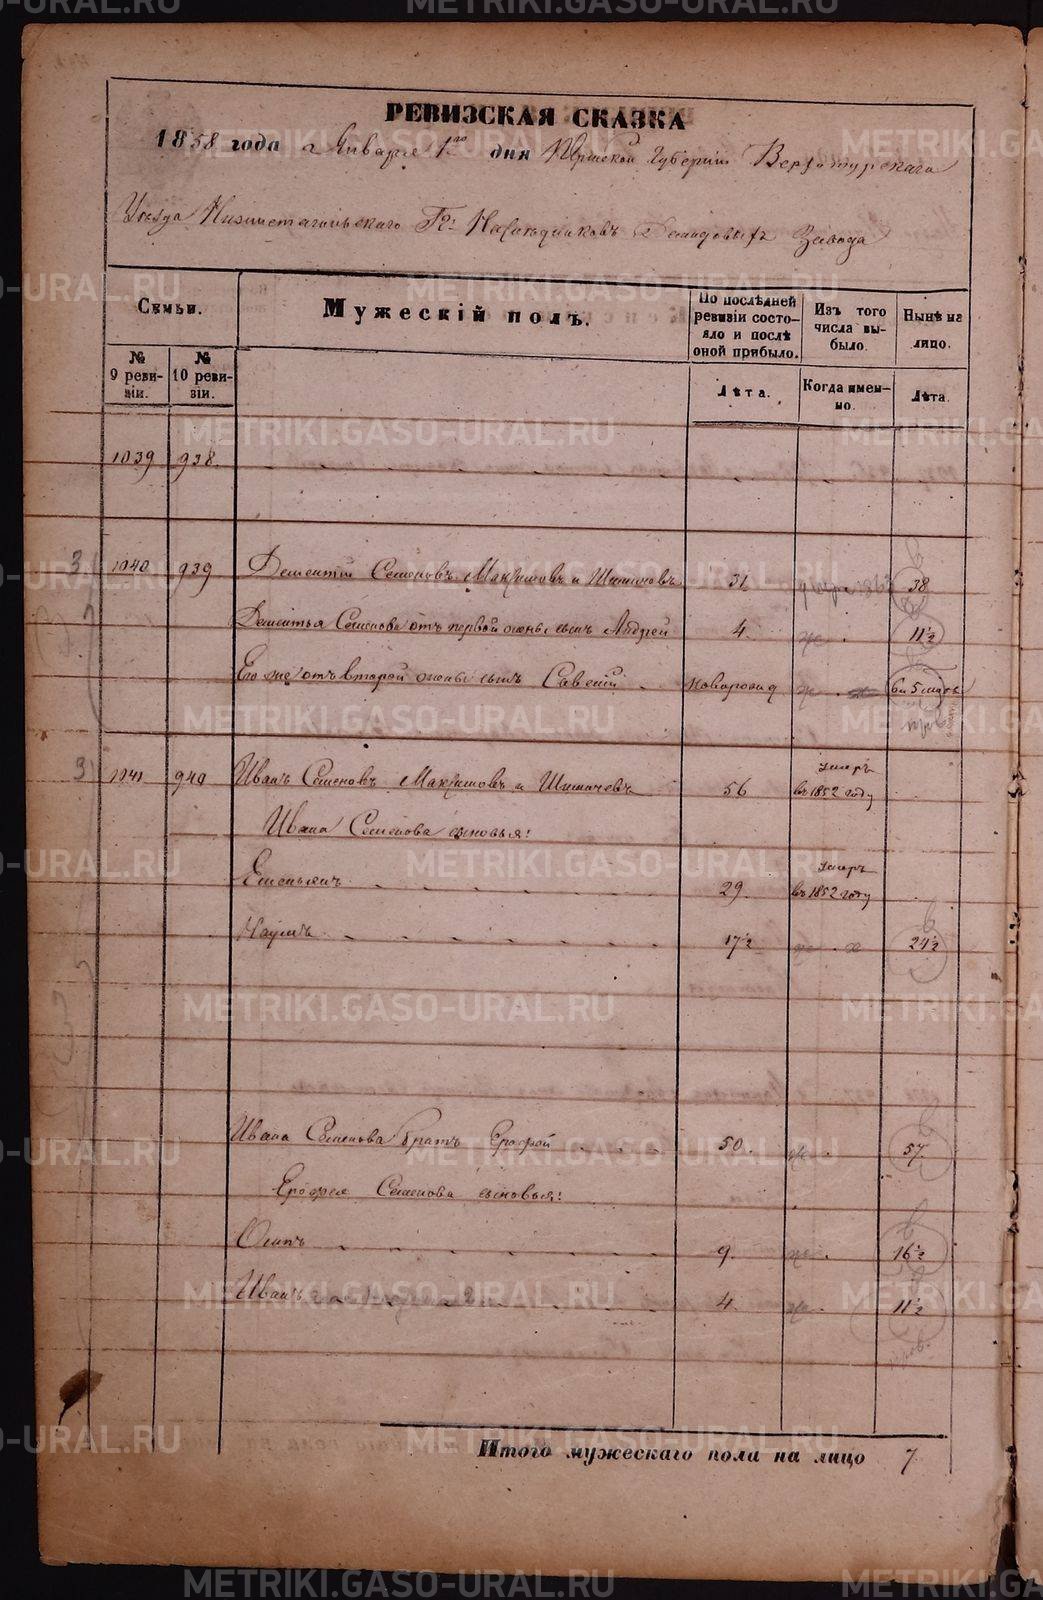 РЕВИЗСКАЯ СКАЗКА
1858 года Января 1го дня Пермской Губерніи Верхотурскаго
Уѣзда Нижнетагильскаго Гг. Наслѣдниковъ Демидовыхъ Завода
Семьи.
№ 9 ревизіи.
№ 10 ревизіи.
Мужескій полъ.
По послѣдней ревизіи состояло и послѣ оной прибыло.
Изъ того числа выбыло.
Нынѣ на лицо.
Лѣта.
Когда именно.
Лѣта.
1039 938.
3 1040 939 Дементій Семеновъ Максимовъ и 31 38
Дементья Семенова отъ первой жены сынъ Андрей 4. 11½
Его же отъ второй жены сынъ Савелій новорожд 6 и 5 мѣся
3 1041 940 Иванъ Семеновъ Максимовъ и 56 умеръ въ 1852 году
Ивана Семенова сыновья:
Емельянъ 29. умеръ въ 1852 году
Наумъ 17½ 24½
Ивана Семенова братъ Ерофей 50. 57.
Ерофея Семенова сыновья:
Осипъ 9. 16½
Иванъ 4. 11½
Итого мужескаго пола на лицо 7
METRIKI.GASO-URAL.RU